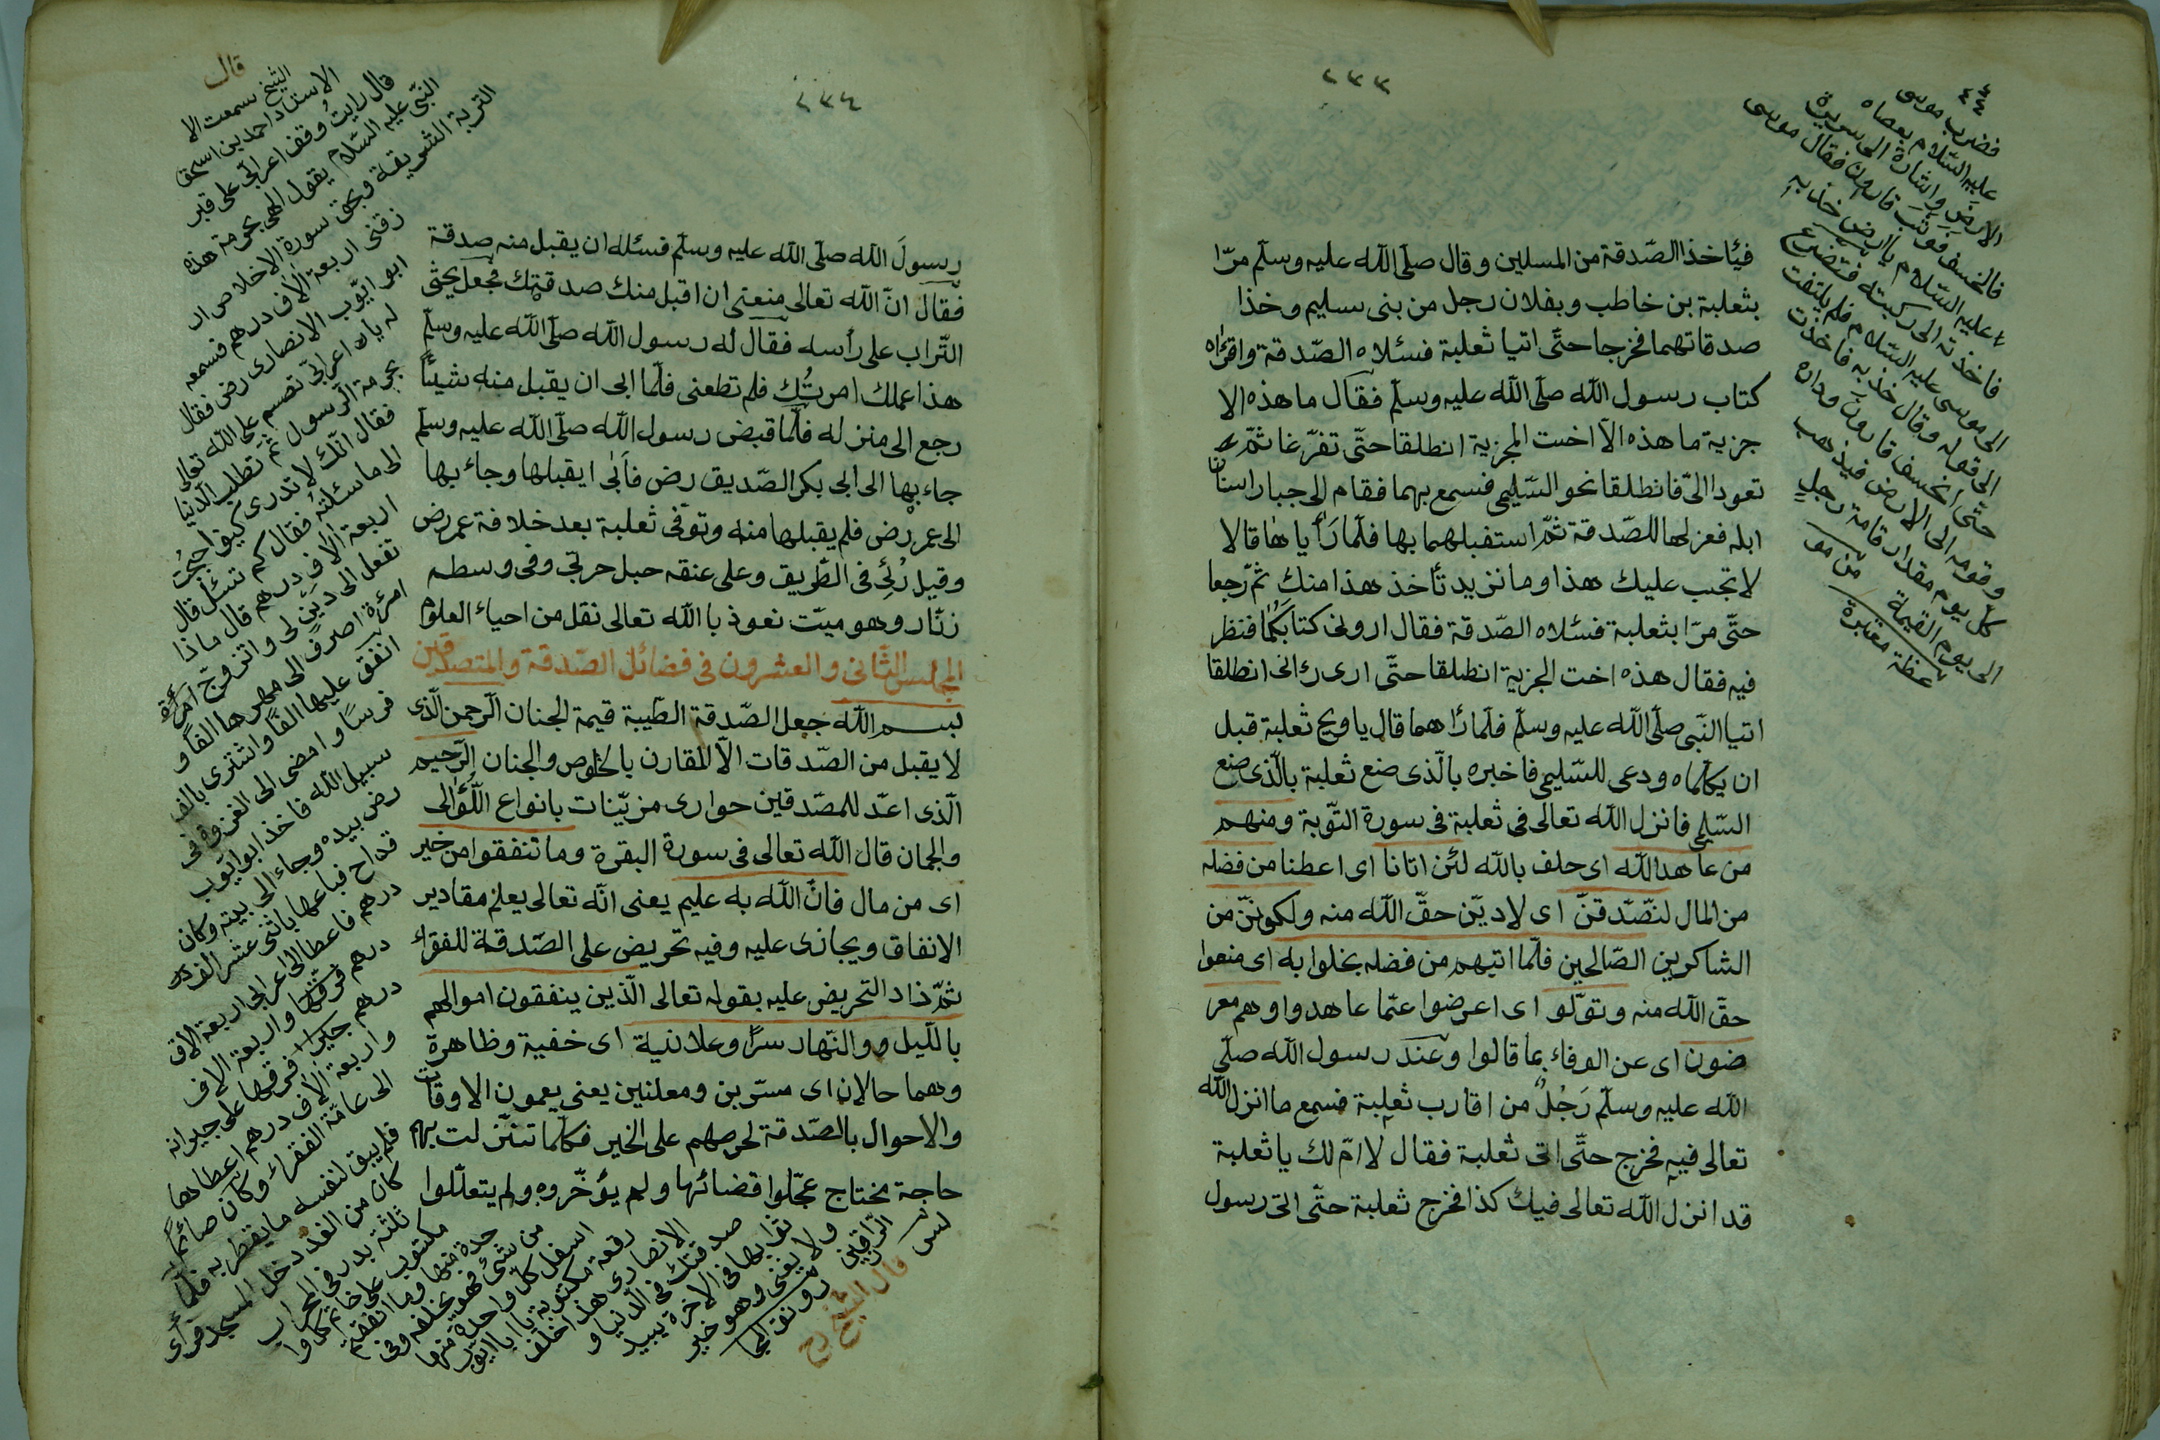 ٢٣٣
فيأخذ الصّدقة من المسلين وقال صلّى اللّه عليه وسلّم مرّا
بثعلبة بن خاطب وبفلان رجل من بنى سليم وخذا
صدقاتهما فخرجا حتّى اتيا ثعلبة فسئلاه الصّدقة واقرأه
كتاب رسول اللّه صلّى اللّه عليه وسلّم فقال ما هذه الا
جزية ما هذه الّا اخت الجزية انطلقا حتّى تفرّغا ثمّ
تعودا الىّ فانطلقا نحو السّليمى فسمع بهما فقام الى جبار اسنان
ابله فعزلها للصّدقة ثمّ استقبلهما بها فلمّا رأياها قالا
لا تجب عليك هذا وما نزيد تأخذ هذا منك ثمّ رجعا
حتّى مرّا بثعلبة فسئلاه الصّدقة فقال ارونى كتابكما فنظر
فيه فقال هذه اخت الجزية انطلقا حتّى ارى رائى انطلقا
اتيا النّبى صلّى اللّه عليه وسلّم فلمّا رٔاهما قال يا ويح ثعلبة قبل
ان يكلّماه ودعى للسّليمى فاخبره بالّذى صنع ثعلبة بالّذى صنع
السّلمى فانزل اللّه تعالى فى ثعلبة فى سورة التّوبة ومنهم
من عاهد اللّه اى حلف باللّه لئن اتانا اى اعطنا من فضله
من المال لنصّدّقنّ اى لاديّن حقّ اللّه منه ولكوننّ من
الشاكرين الصّالحين فلمّا اتيهم من فضله بخلوا به اى منعوا
حقّ اللّه منه وتولّوا اى اعرضوا عمّا عاهدوا وهم معر
ضون اى عن الوفاء بما قالوا وعند رسول اللّه صلّى
اللّه عليه وسلّم رَجُلٌ من اقارب ثعلبة فسمع ما انزل اللّه
تعالى فيه فخرج حتّى اتى ثعلبة فقال لا امّ لك يا ثعلبة
قد انزل اللّه تعالى فيك كذا فخرج ثعلبة حتّى اتى رسول
فضرب موسى
عليه السّلام بعصاه
الارض واشارة الى سريرة
فانخسف فوثب قارون فقال موسى
عليه السّلام يا ارض خذ به
فاخذته الى ركبته فتضرع
الى موسى عليه السّلام فلم يلتفت
الى قوله وقال خذ به فاخذت
حتّى انخسف قارون وداره
وقومه الى الارض فيذهب
كلّ يوم مقدار قامة رجل
الى يوم القيمة
عظة معتبرة
٢٣٤
رسولَ اللّه صلّى اللّه عليه وسلّم فسئله ان يقبل منه صدقة
فقال انّ اللّه تعالى منعنى ان اقبل منك صدقتك فجعل يحثى
التّراب على رأسه فقال له رسول اللّه صلّى اللّه عليه وسلّم
هذا عملك امرتُك فلم تطعنى فلمّا ابى ان يقبل منه شيئاً
رجع الى منزله فلمّا قبض رسول اللّه صلّى اللّه عليه وسلّم
جاء بها الى ابى بكر الصّديق رض فأبى ايقبلها وجاء بها
الى عمر رض فلم يقبلها منه وتوفّى ثعلبة بعد خلافة عمر رض
وقيل رُئى فى الطّريق وعلى عنقه حبل حرتى وفى وسطه
زنّار وهو ميّت نعوذ باللّه تعالى نقل من احياء العلوم
المجلس الثّانى والعشرون فى فضائل الصّدقة والمتصدّقين
بسم اللّه جعل الصّدقة الطّيبة قيمة الجنان الرّحمن الّذى
لا يقبل من الصّدقات الّا المقارن بالخلوص والجنان الرّحيم
الّذى اعدّ للمصّدقين حوارى مزيّنات بانواع اللّؤالى
والجمان قال اللّه تعالى فى سورة البقرة وما تنفقوا من خير
اى من مال فانّ اللّه به عليم يعنى انّه تعالى يعلم مقادير
الانفاق ويجازى عليه وفيه تحريض على الصّدقة للفقراء
ثمّ زاد التحريض عليه بقوله تعالى الّذين ينفقون اموالهم
باللّيل ووالنّهار سرًّا وعلانية اى خفية وظاهرة
وهما حالان اى مسرّين ومعلنين يعنى يعمون الاوقات
والاحوال بالصّدقة لحرصهم على الخير فكلّما تنزّلت بهم
حاجة محتاج عجّلوا قضائها ولم يؤخّروه ولم يتعلّلوا
قال
الشيخ سمعت الا
الاستاد احمد بن اسحق
قال رايت وقف اعرابىّ على قبر
النّبى عليه السّلام يقول الهى بحرمة هذه
التربة الشريفة وبحق سورة الاخلاص ار
زقنى اربعة الاف درهم فسمعه
ابو ايّوب الانصارى رض فقال
له يا اعرابى تقسم على اللّه تعالى
بحرمة الرّسول ثمّ تطلب الدّنيا
فقال انّك لا تدرى كيف اجبت
الى ما سئلته فقال كم تسئل قال
اربعة الاف درهم قال ماذا
تفعل الى دين لى واتزوج امرأة
امرئة اصرف الى مهرها الفا و
انفق عليها الفا واشترى بالف
فرسًا وامضى الى الغزوة فى
سبيل اللّه فاخذ ابو ايّوب
رض بيده وجاء الى بيته وكان
قداح فباعها باثنى عشر الف در
درهم فاعطا الى اعرابى اربعة الاف
درهم فرّقها واربعة الاف
درهم فرقها على جيرانه
واربعة الاف درهم اعطاها
الى عامّة الفقراء وكان صائما
فلم يبق لنفسه ما يفطر به فلمّا
كان من الغد دخل المسجد فرأى
ثلثة بدر فى المحراب
مكتوب على خاتم كلّ وا
حدة منها وما انفقتم
من شئ فهو يخلفه وفى
اسفل كلّ واحدة منها
رقعة مكتوبة يا ابا ايّوب
الانصارى هذا خلف
صدقتك فى الدّنيا و
ثوابها فى الاخرة يبيد
ولا يفنى وهو خير
الرّازقين رونق المجا
لس
قال الشيخ رح